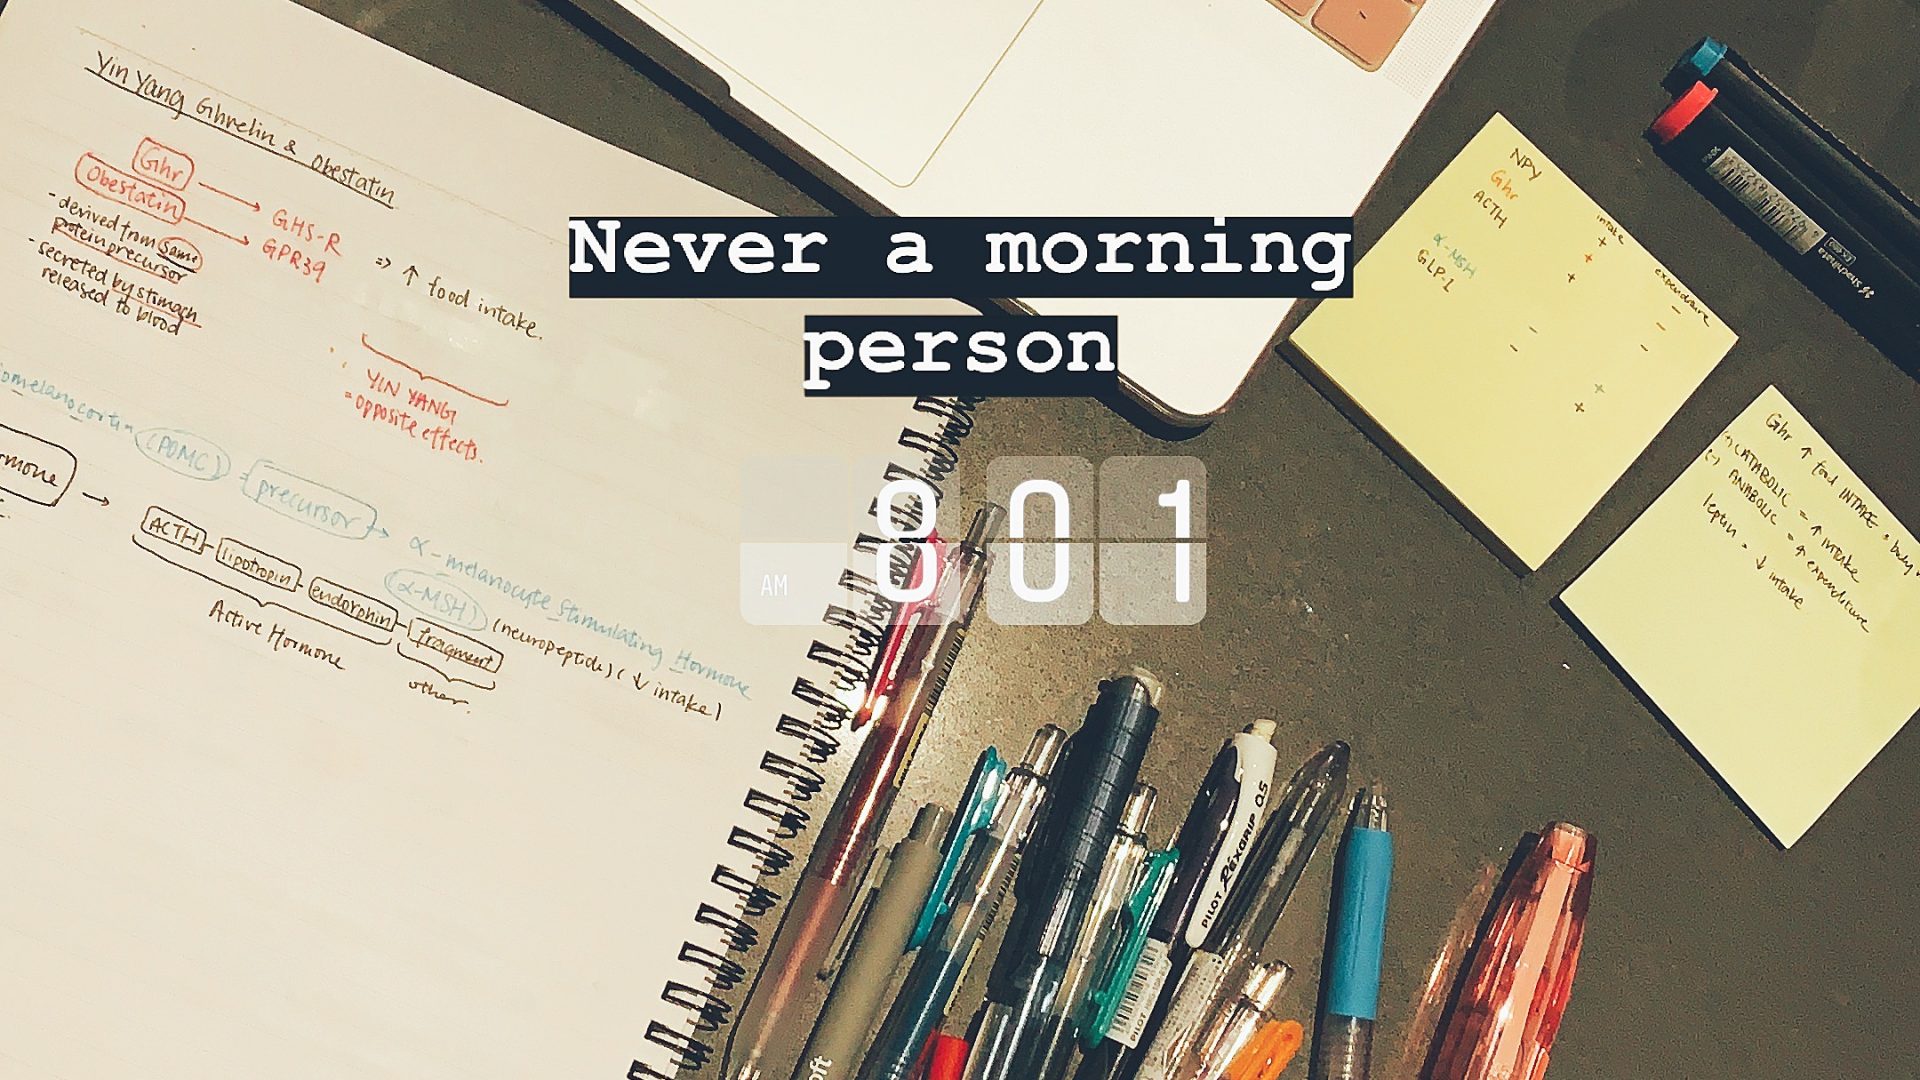 Yin Yang Ghrelin & Obestatin
Ghr
Obestatin
GHS-R
GPR39
- derived from same
protein precursor
- secreted by stomach
released to blood
=> ↑ food intake.
YIN YANG
= opposite effects.
omelanocortin (POMC) - precursor →
α-melanocyte Stimulating Hormone
(α-MSH) (neuropeptide) (↓ intake)
rmone →
ACTH - lipotropin - endorphin - fragment
Active Hormone
other.
Never a morning
person
AM 8 01
NPY
Ghr
ACTH
α-MSH
GLP-1
intake
+
+
+
-
-
expenditure
-
-
-
+
+
Ghr ↑ food INTAKE & body
(+) CATABOLIC = ↑ intake
(-) ANABOLIC = ↑ expenditure
leptin = ↓ intake
PILOT RéxGRIP 0.5
PILOT
oft